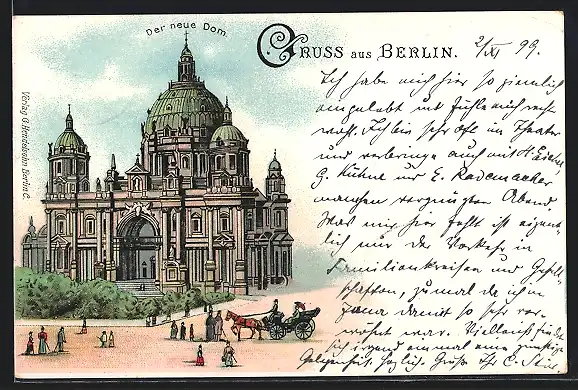 Der neue Dom.
GRUSS aus BERLIN.
2/XI 99.
Verlag G. Hendelsohn Berlin C.
Ich habe mich hier so ziemlich
eingelebt und fühle mich recht
wohl. Ich bin sehr oft im Theater
und verbringe auch mit H.
G. Kühne und E. Rademacher
manchen vergnügten Abend.
Was mir hier fehlt ist eigent-
lich nur der Verkehr in
Familienkreisen und Gesell-
schaften, zumal da ich in
damit so sehr ver-
wöhnt war. Vielleicht findet
sich irgend einmal eine günstige
Gelegenheit. Herzlich. Grüße Ihr C.